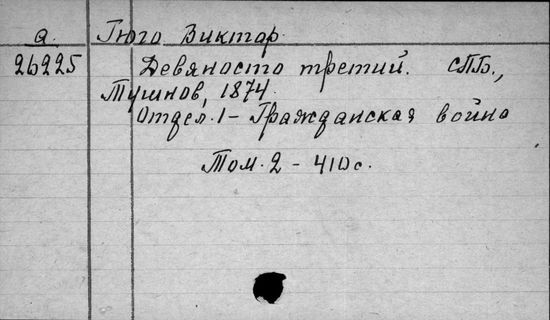 а. Гюго Виктор.
26225 Девяносто третий. СПБ.,
Тушнов, 1874.
Отдел.1 - Гражданская война
Том.2 - 410с.